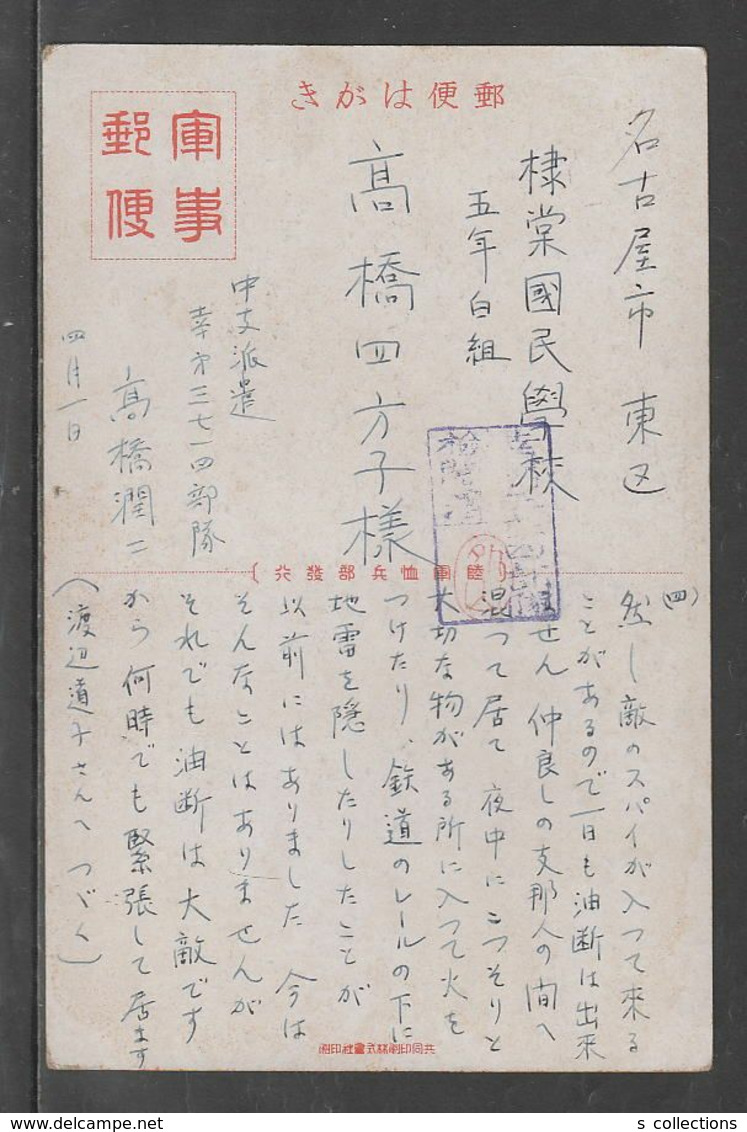 郵便はがき
軍事郵便
名古屋市東区
棣棠國民學校
五年白組
高橋四方子様
中支派遣
幸才三七一四部隊
高橋潤二
四月一日
(陸軍恤兵部發行)
(四)
然し敵のスパイが入つて来る
ことがあるので一日も油断は出来
ません 仲良しの支那人の間へ
混つて居て 夜中にこつそりと
大切な物がある所に入つて火を
つけたり、鉄道のレールの下に
地雷を隠したりしたことが
以前にはありました 今は
そんなことはありませんが
それでも油断は大敵です
から何時でも緊張して居ます
(渡辺道子さんへつづく)
共同印刷株式會社印刷
s collections